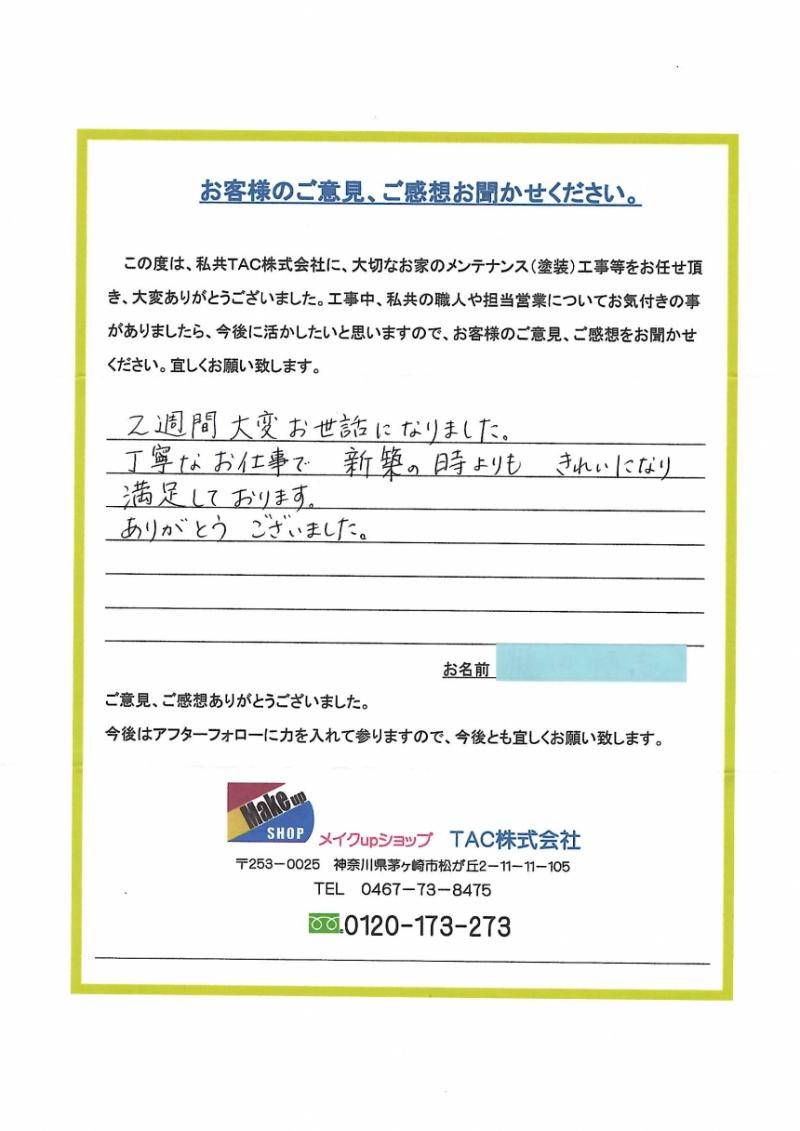 お客様のご意見、ご感想お聞かせください。
この度は、私共TAC株式会社に、大切なお家のメンテナンス（塗装）工事等をお任せ頂
き、大変ありがとうございました。工事中、私共の職人や担当営業についてお気付きの事
がありましたら、今後に活かしたいと思いますので、お客様のご意見、ご感想をお聞かせ
ください。宜しくお願い致します。
2週間大変お世話になりました。
丁寧なお仕事で 新築の時よりも きれいになり
満足しております。
ありがとう ございました。
お名前
ご意見、ご感想ありがとうございました。
今後はアフターフォローに力を入れて参りますので、今後とも宜しくお願い致します。
Make up
SHOP
メイクupショップ TAC株式会社
〒253−0025 神奈川県茅ヶ崎市松が丘2−11−11−105
TEL 0467−73−8475
0120-173-273